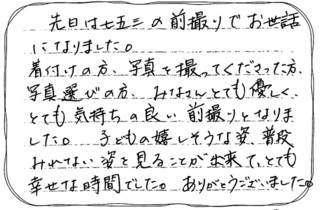 先日は七五三の前撮りでお世話
になりました。
着付けの方、写真を撮ってくださった方、
写真選びの方、みなさんとても優しく、
とても気持ちの良い前撮りとなりま
した。子どもの嬉しそうな姿、普段
みれない姿を見ることが出来て、とても
幸せな時間でした。ありがとうございました。